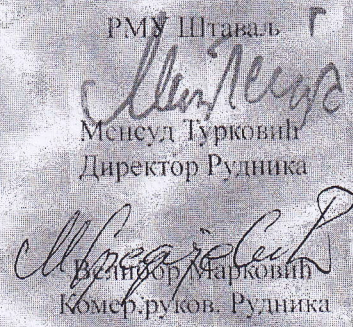 РМУ Штаваљ
Менсуд Турковић
Директор Рудника
Велибор Марковић
Комер.руков. Рудника